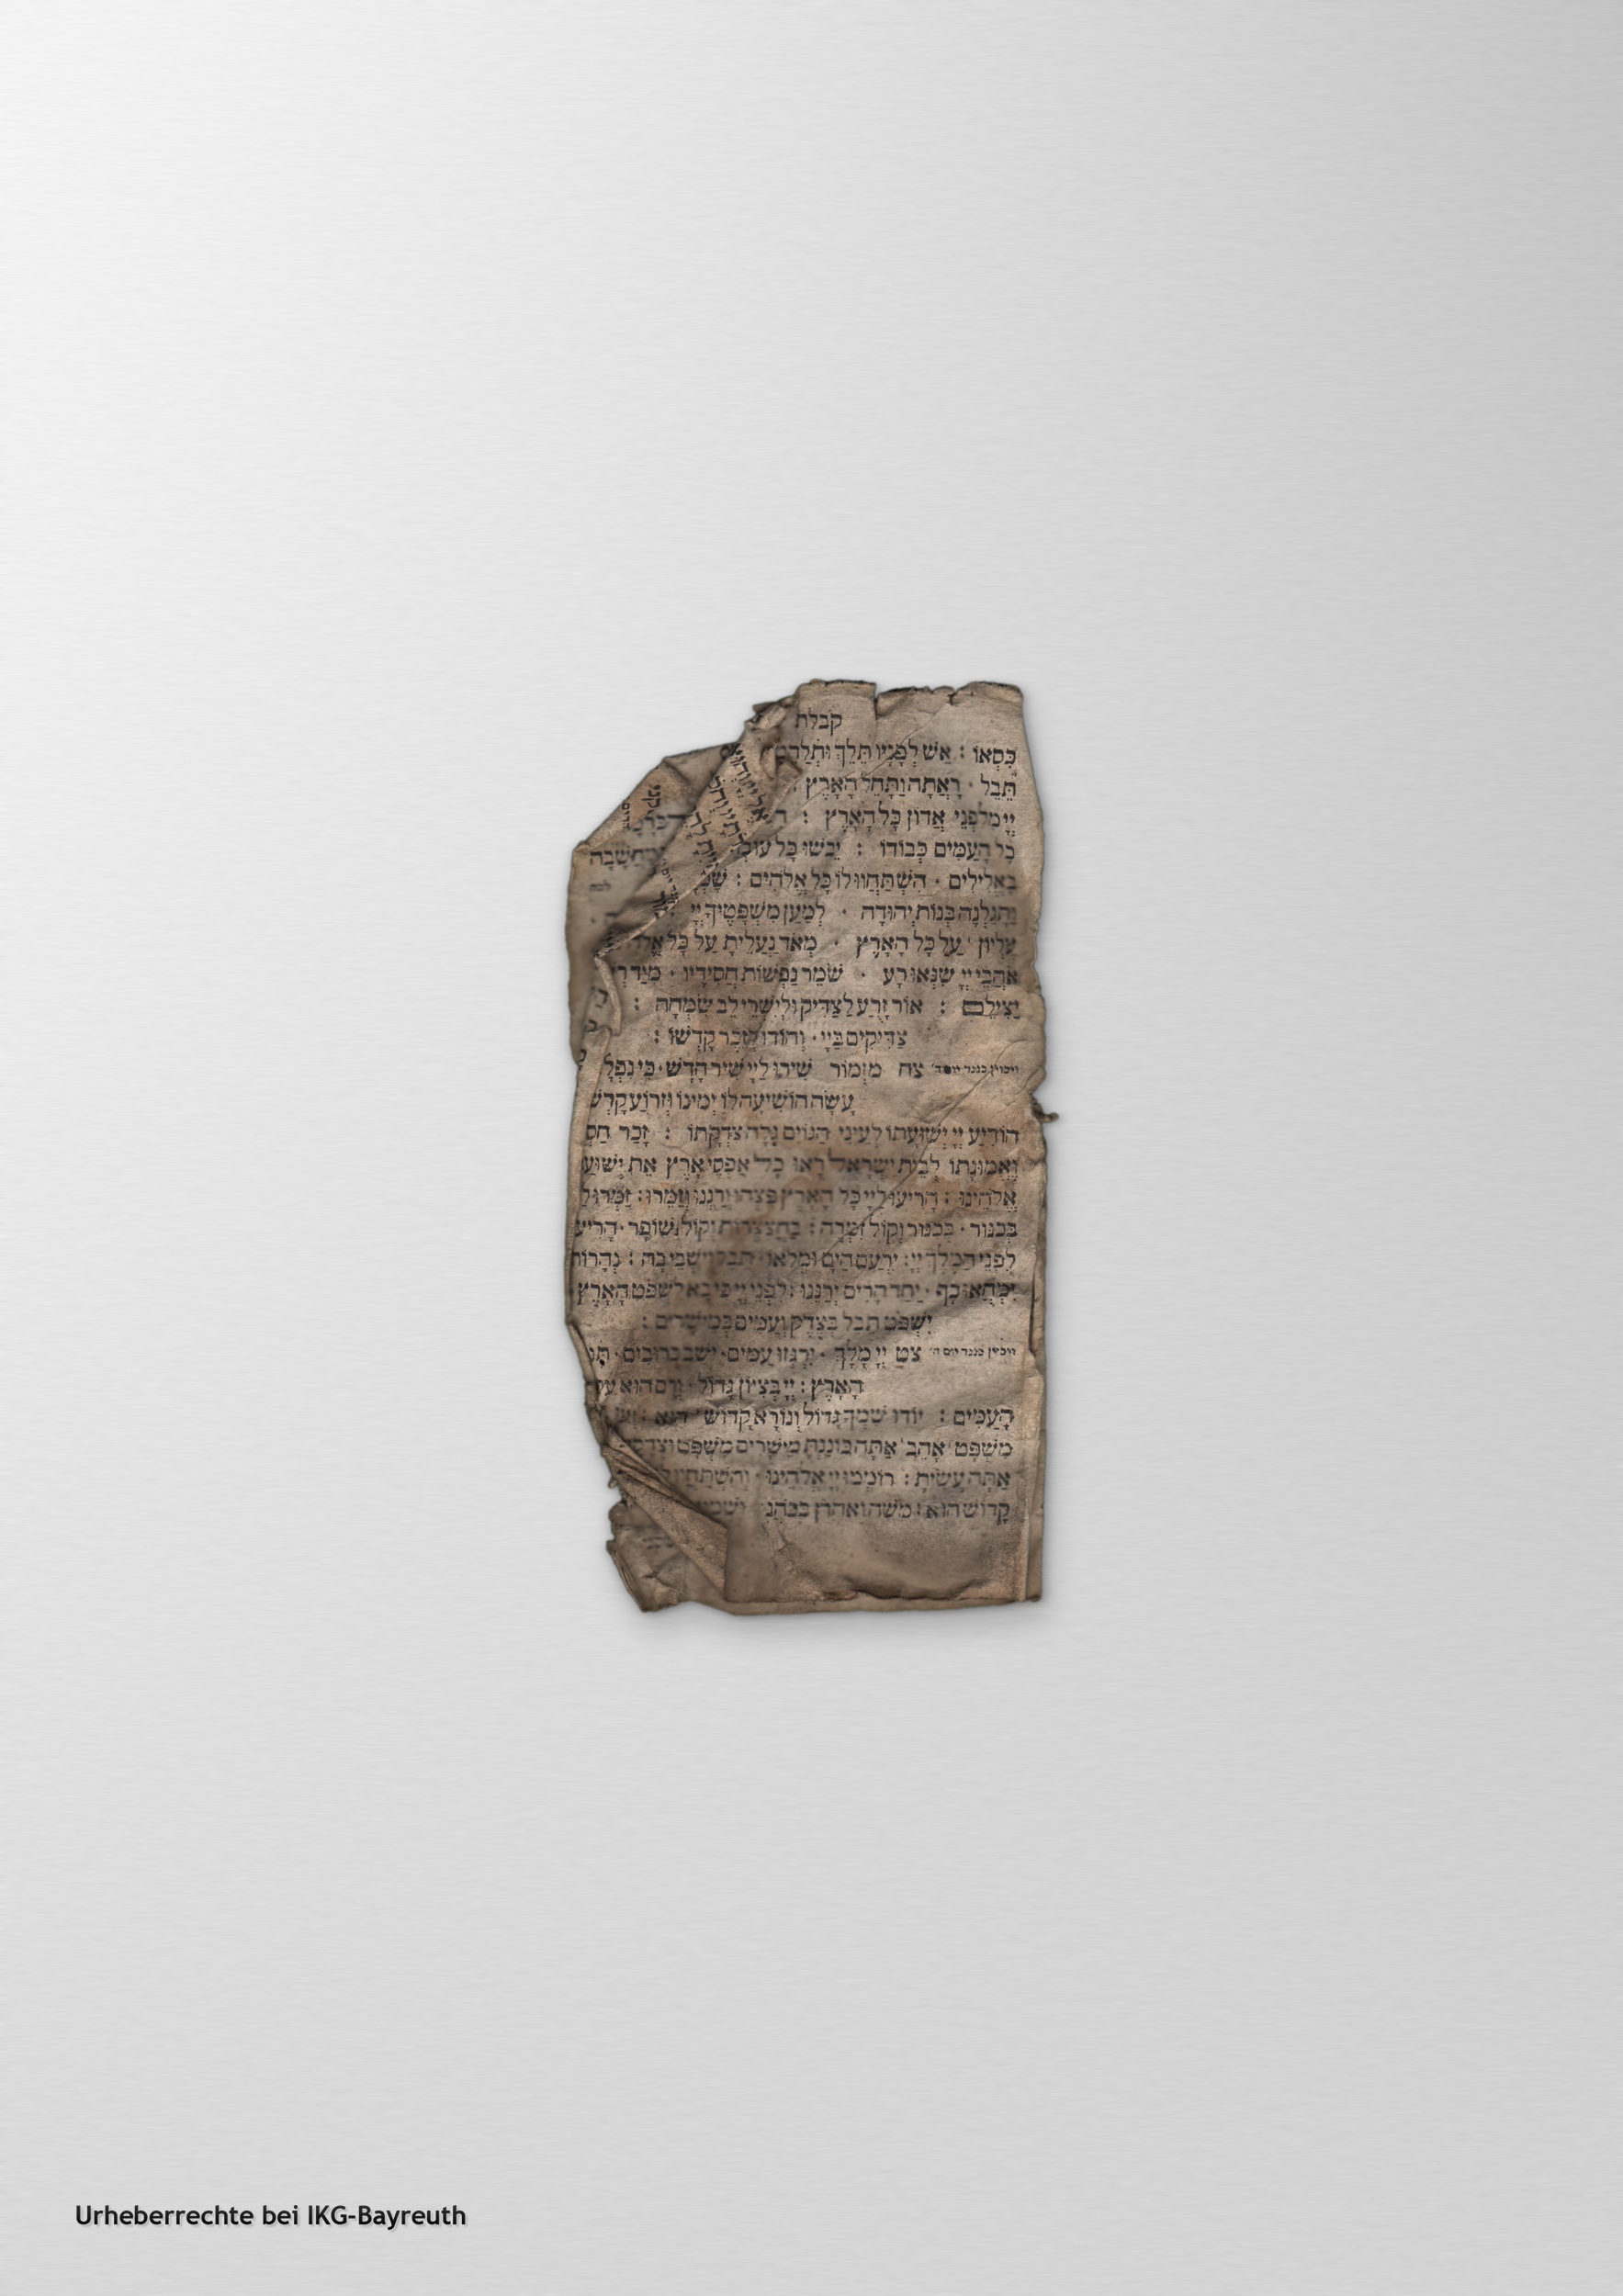 קבלת
כִּסְאוֹ : אֵשׁ לְפָנָיו תֵּלֵךְ וּתְלַהֵט
תֵּבֵל · רָאֲתָה וַתָּחֵל הָאָרֶץ :
יְיָ מִלִּפְנֵי אֲדוֹן כָּל הָאָרֶץ :
כָל הָעַמִּים כְּבוֹדוֹ : יֵבֹשׁוּ כָּל עוֹבְ
בָּאֱלִילִים · הִשְׁתַּחֲווּ לוֹ כָּל אֱלֹהִים : שָׁמְ
וַתָּגֵלְנָה בְּנוֹת יְהוּדָה · לְמַעַן מִשְׁפָּטֶיךָ יְיָ
עֶלְיוֹן עַל כָּל הָאָרֶץ · מְאֹד נַעֲלֵיתָ עַל כָּל
אֹהֲבֵי יְיָ שִׂנְאוּ רָע · שֹׁמֵר נַפְשׁוֹת חֲסִידָיו · מִיַּד
יַצִּילֵם : אוֹר זָרֻעַ לַצַּדִּיק וּלְיִשְׁרֵי לֵב שִׂמְחָה :
צַדִּיקִים בַּיְיָ · וְהוֹדוּ לְזֵכֶר קָדְשׁוֹ :
צח מִזְמוֹר שִׁירוּ לַיְיָ שִׁיר חָדָשׁ · כִּי נִפְלָ
עָשָׂה הוֹשִׁיעָה לּוֹ יְמִינוֹ וּזְרוֹעַ קָדְשׁ
הוֹדִיעַ יְיָ יְשׁוּעָתוֹ לְעֵינֵי הַגּוֹיִם גִּלָּה צִדְקָתוֹ : זָכַר חַס
וֶאֱמוּנָתוֹ לְבֵית יִשְׂרָאֵל רָאוּ כָל אַפְסֵי אָרֶץ אֵת יְשׁוּעַ
אֱלֹהֵינוּ : הָרִיעוּ לַיְיָ כָּל הָאָרֶץ פִּצְחוּ וְרַנְּנוּ וְזַמֵּרוּ : זַמְּרוּ לַ
בְּכִנּוֹר · בְּכִנּוֹר וְקוֹל זִמְרָה : בַּחֲצֹצְרוֹת וְקוֹל שׁוֹפָר · הָרִיע
לִפְנֵי הַמֶּלֶךְ יְיָ : יִרְעַם הַיָּם וּמְלֹאוֹ · תֵּבֵל וְיֹשְׁבֵי בָהּ : נְהָרוֹת
יִמְחֲאוּ כָף · יַחַד הָרִים יְרַנֵּנוּ : לִפְנֵי יְיָ כִּי בָא לִשְׁפֹּט הָאָרֶץ
יִשְׁפֹּט תֵּבֵל בְּצֶדֶק וְעַמִּים בְּמֵישָׁרִים :
צט יְיָ מָלָךְ · יִרְגְּזוּ עַמִּים · יֹשֵׁב כְּרוּבִים · תָּנ
הָאָרֶץ : יְיָ בְּצִיּוֹן גָּדוֹל · וְרָם הוּא עַ
הָעַמִּים : יוֹדוּ שִׁמְךָ גָּדוֹל וְנוֹרָא קָדוֹשׁ הוּא :
מִשְׁפָּט אָהֵב אַתָּה כּוֹנַנְתָּ מֵישָׁרִים מִשְׁפָּט וּצְדָקָ
אַתָּה עָשִׂיתָ : רוֹמְמוּ יְיָ אֱלֹהֵינוּ · וְהִשְׁתַּחֲווּ
קָדוֹשׁ הוּא : מֹשֶׁה וְאַהֲרֹן בְּכֹהֲנָ
Urheberrechte bei IKG-Bayreuth